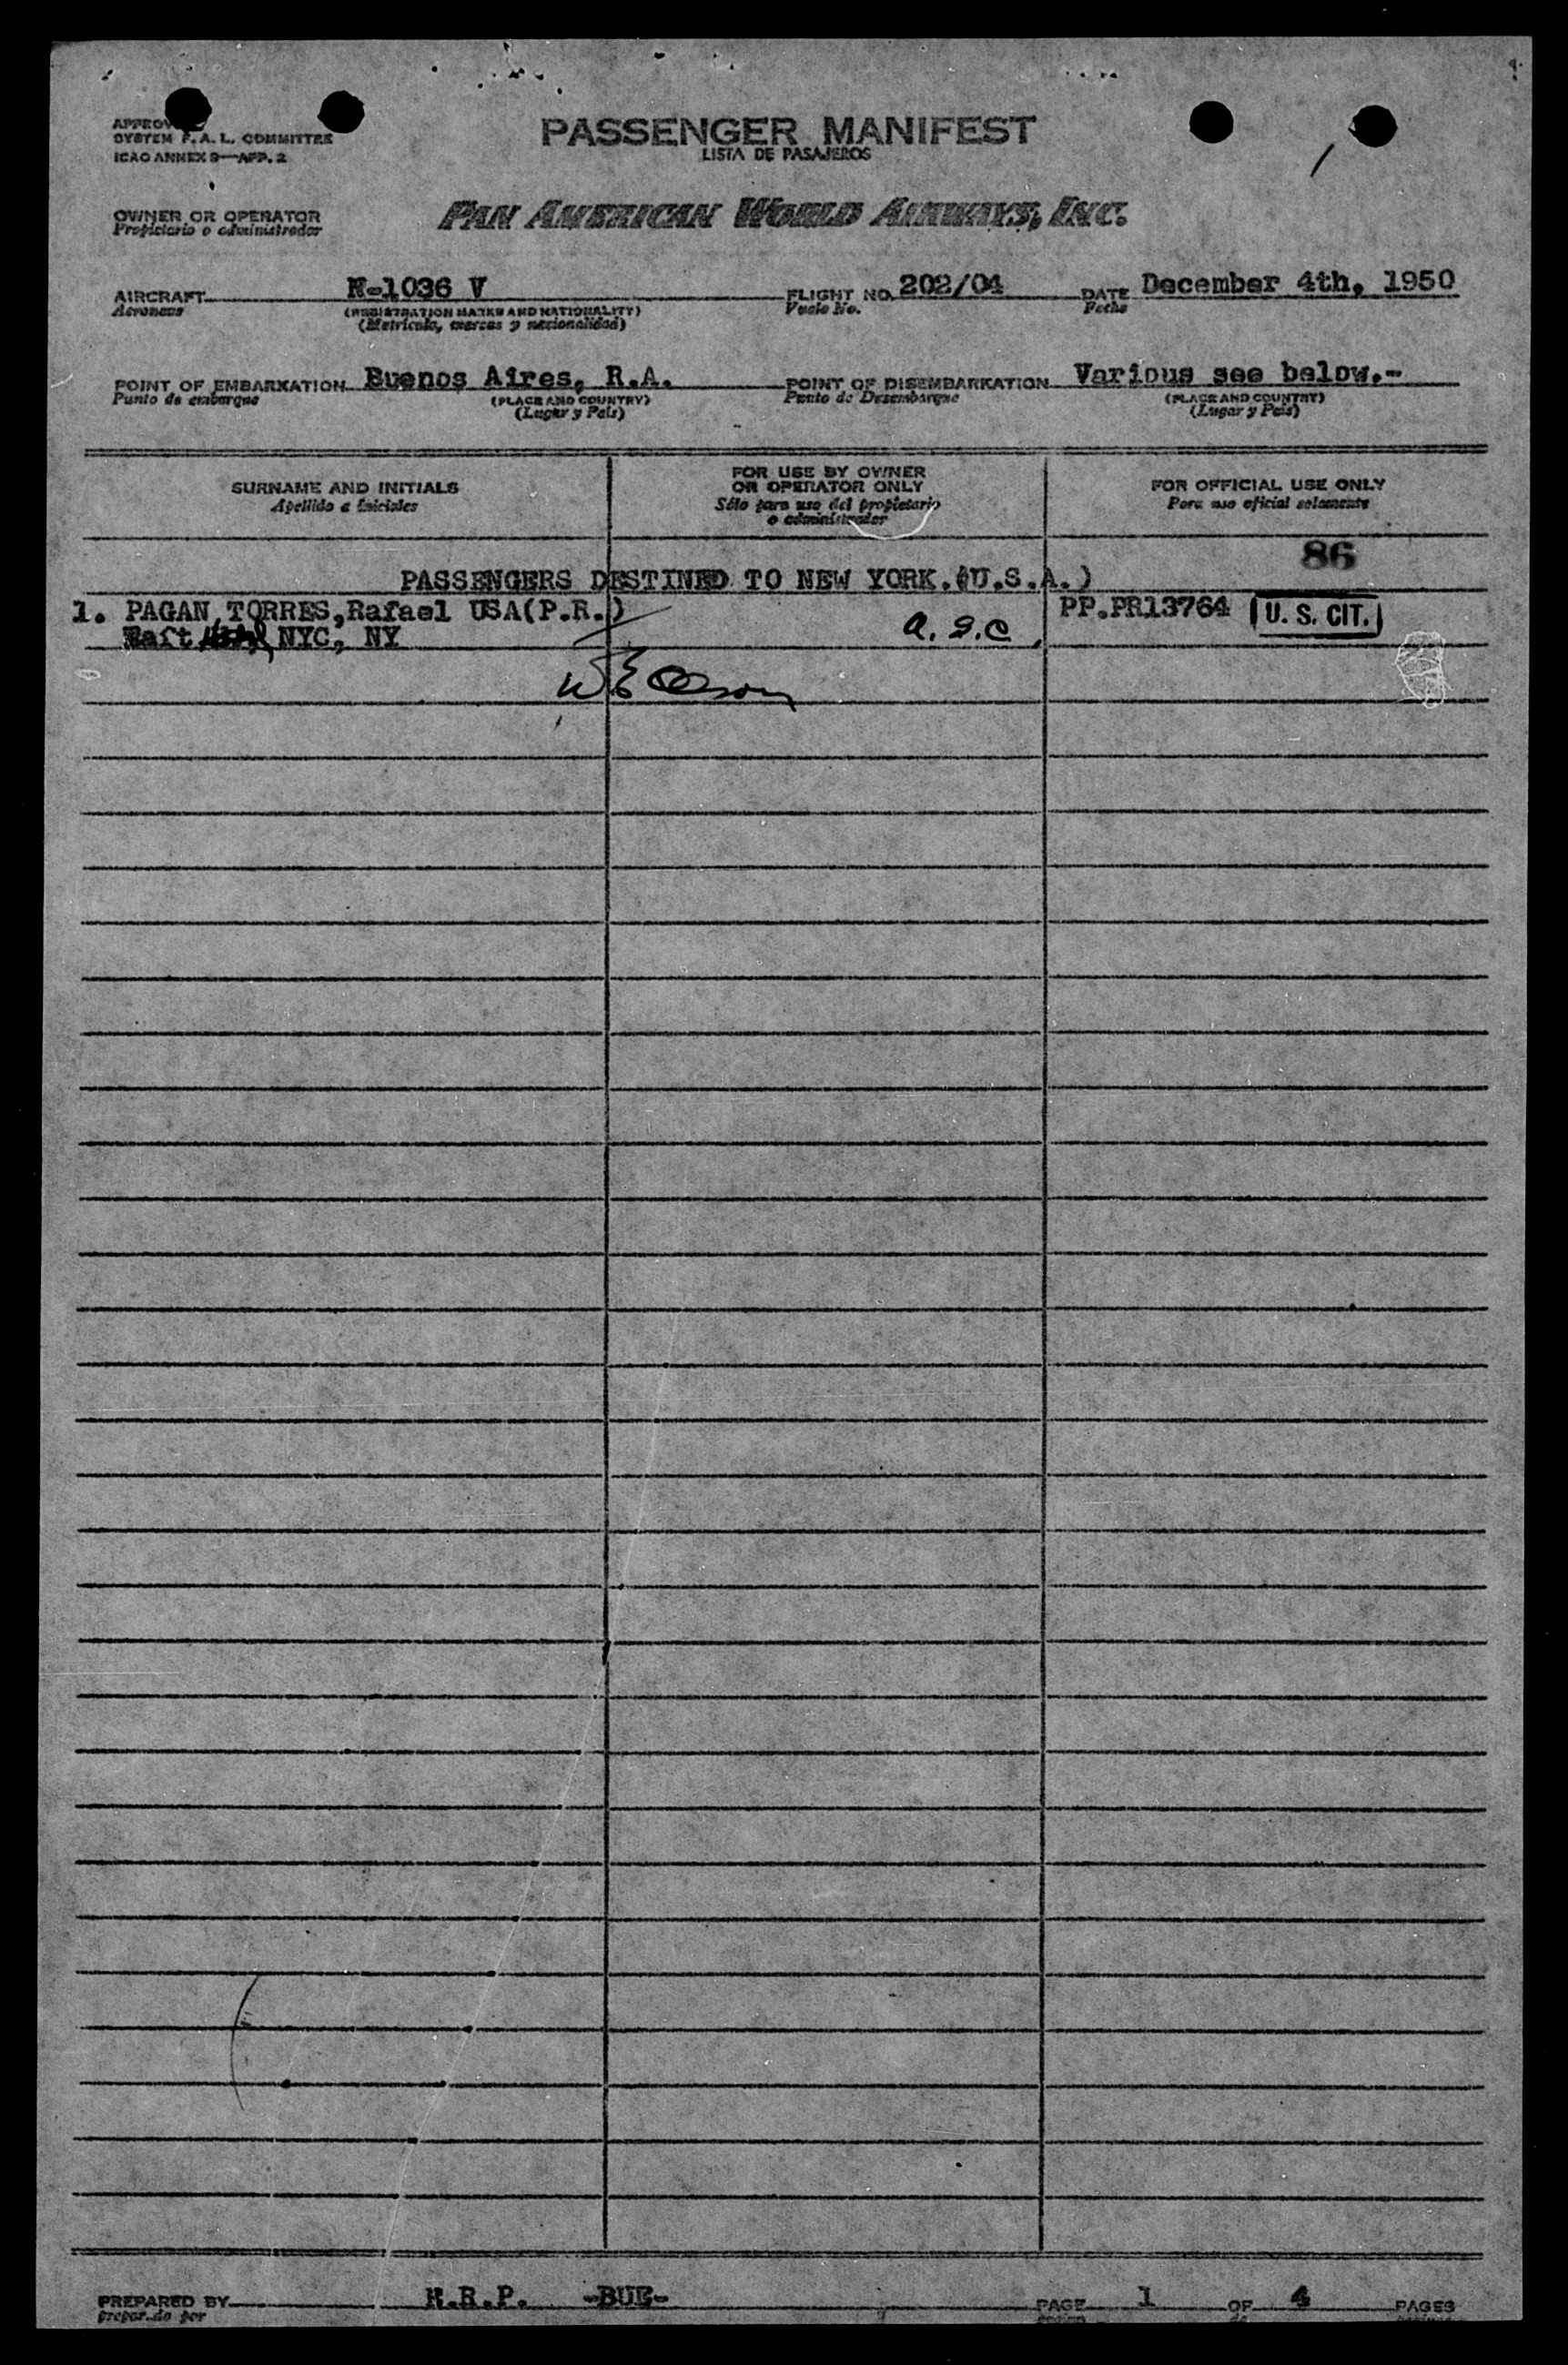 APPROV
SYSTEM F.A.L. COMMITTEE
ICAO ANNEX 9—APP. 2
PASSENGER MANIFEST
LISTA DE PASAJEROS
OWNER OR OPERATOR
Propietario o administrador
PAN AMERICAN WORLD AIRWAYS, INC.
AIRCRAFT N-1036 V FLIGHT NO. 202/04 DATE December 4th, 1950
Aeronave (REGISTRATION MARKS AND NATIONALITY) Vuelo No. Fecha
(Matrícula, marcas y nacionalidad)
POINT OF EMBARKATION Buenos Aires, R.A. POINT OF DISEMBARKATION Various see below.-
Punto de embarque (PLACE AND COUNTRY) Punto de Desembarque (PLACE AND COUNTRY)
(Lugar y País) (Lugar y País)
SURNAME AND INITIALS FOR USE BY OWNER OR OPERATOR ONLY FOR OFFICIAL USE ONLY
Apellido e iniciales Sólo para uso del propietario o administrador Para uso oficial solamente
86
PASSENGERS DESTINED TO NEW YORK.(U.S.A.)
1. PAGAN TORRES,Rafael USA(P.R.) PP.PR13764 U. S. CIT.
NYC, NY
PREPARED BY H.R.P. -BUE- PAGE 1 OF 4 PAGES
preparado por